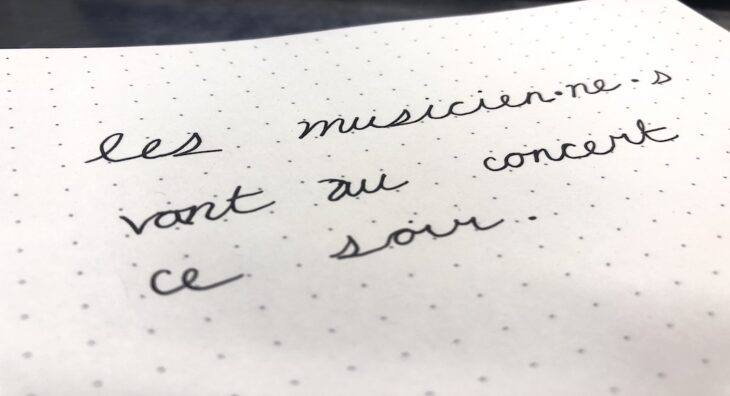 les musicien·ne·s
vont au concert
ce soir.